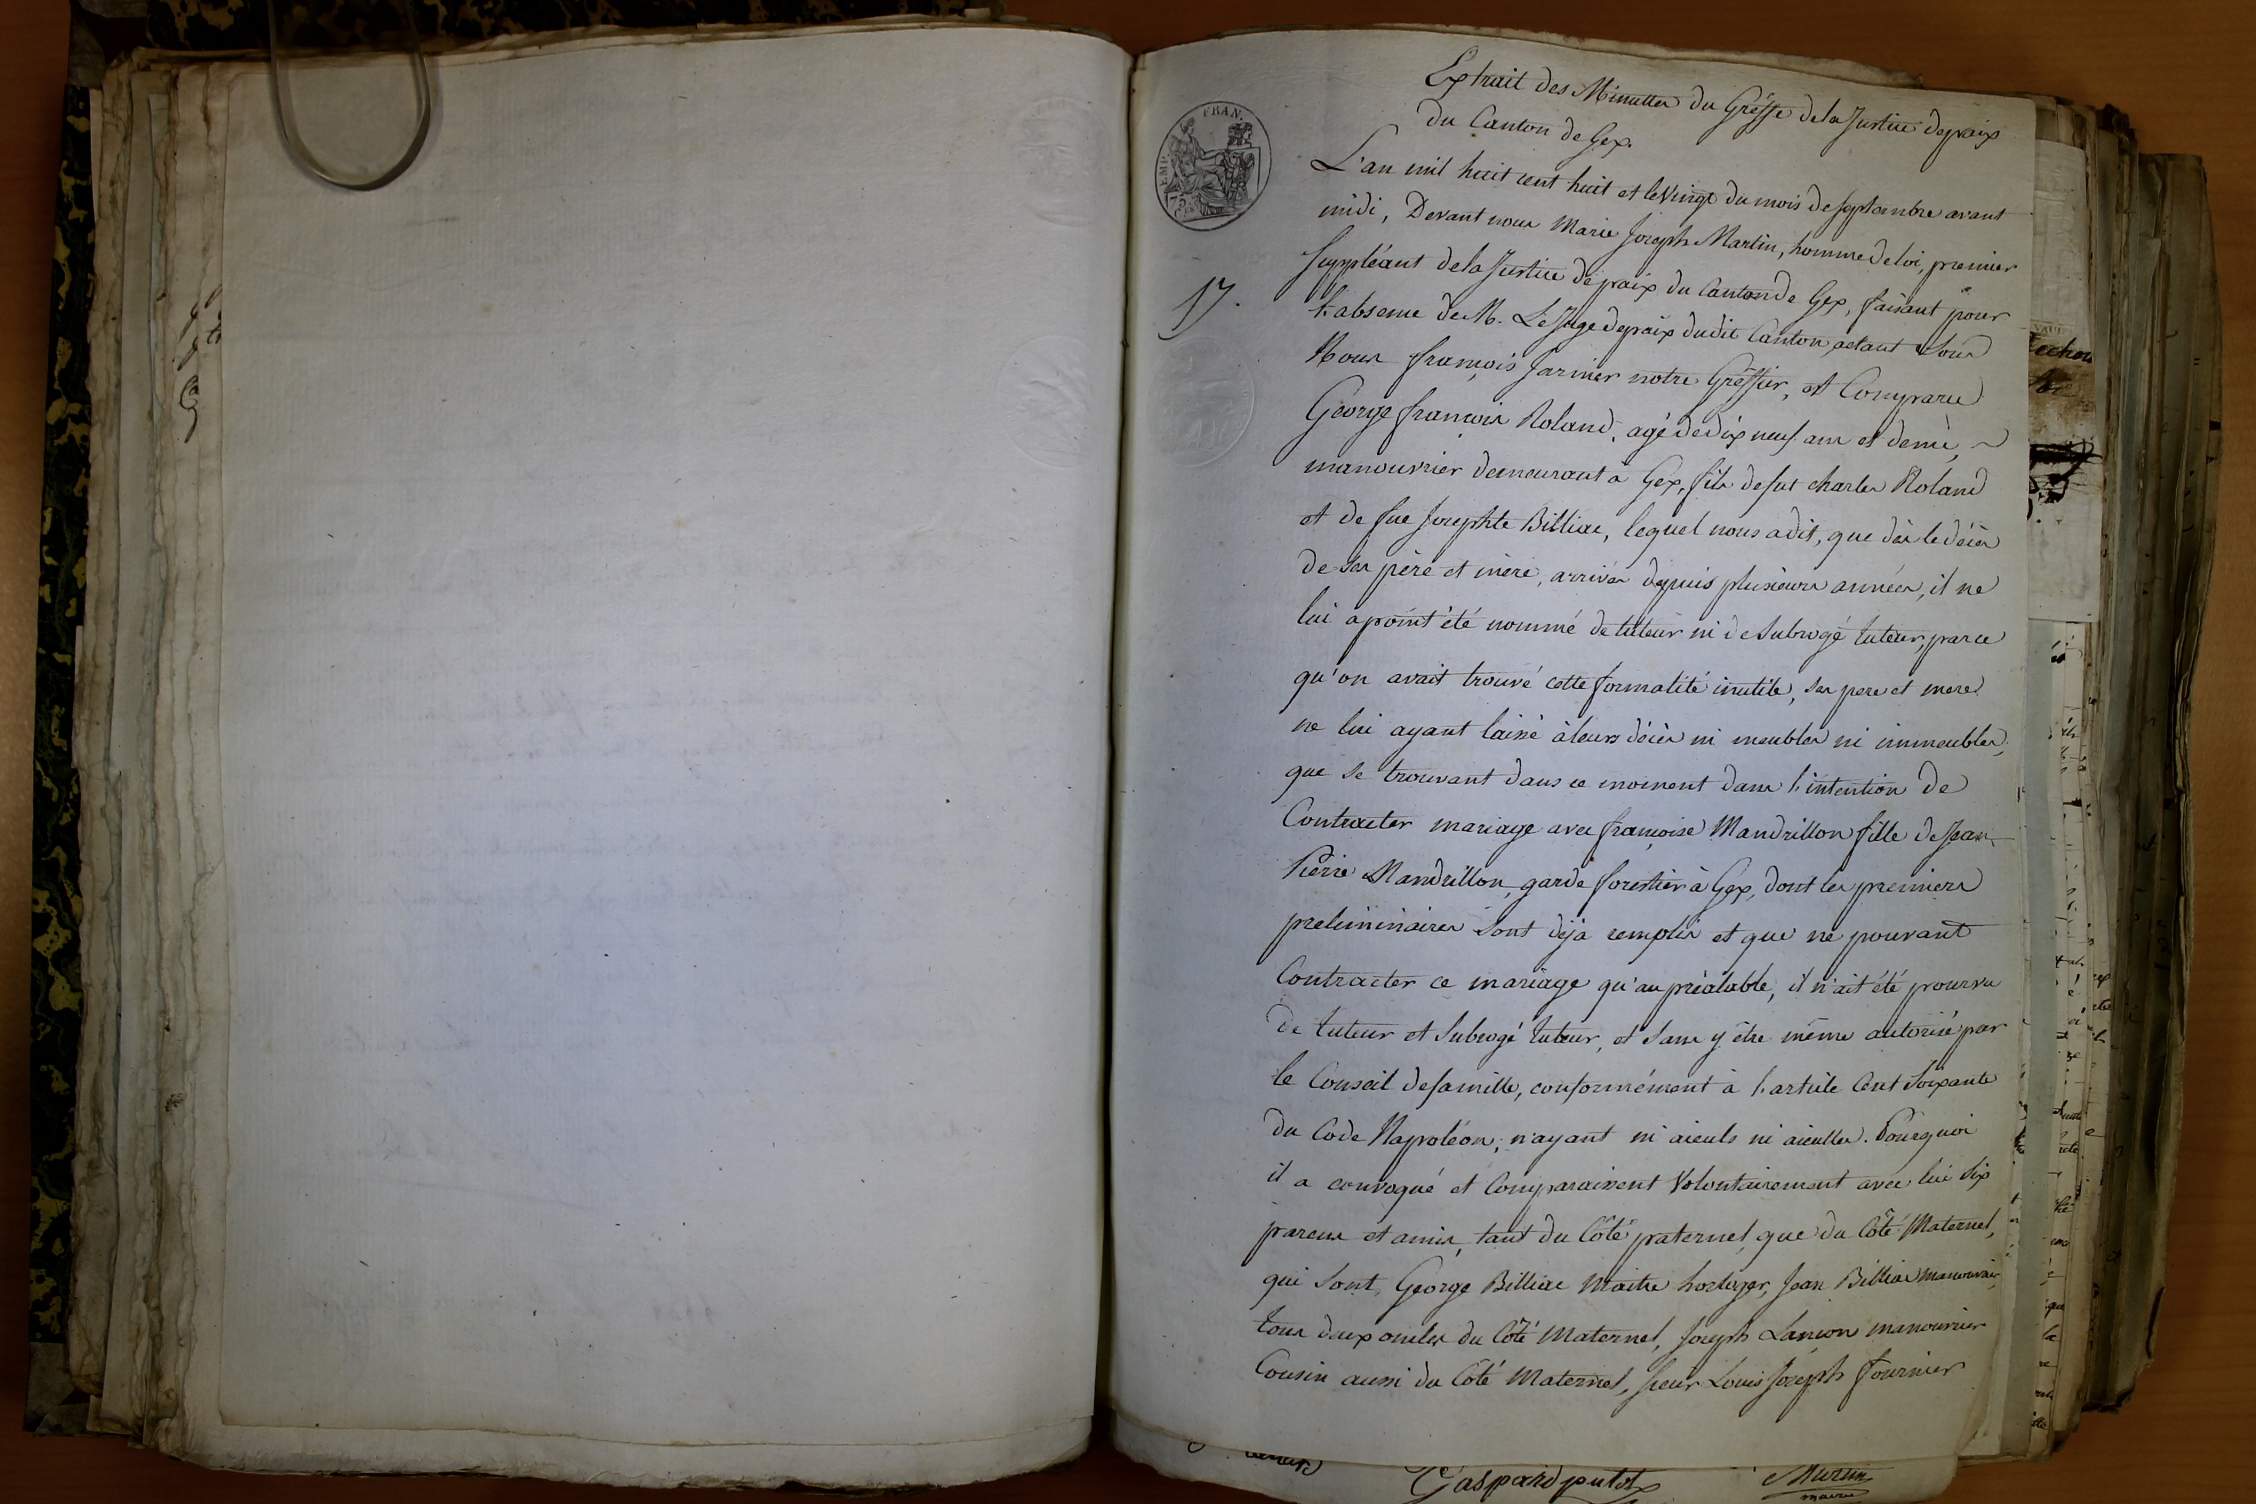 Extrait des Minuttes du Gréffe de la Justice de paix
du Canton de Gex.
EMP. FRAN.
75 C.
17.
L'an mil huit cent huit et le vingt du mois de septembre avant
midi, Devant nous Marie Joseph Martin, homme de loi, premier
suppléant de la Justice de paix du Canton de Gex, faisant pour
l'absence de M. Le Juge de paix dudit Canton, actant sous
Nous françois Jarinier notre Gréffier, est Comparu
George françois Roland, agé de dix neuf ans et demi, ~
manouvrier demeurant a Gex, fils de fut charles Roland
et de fue Josephte Billiae, lequel nous a dit, que dès le décès
de ses père et mère, arrivés depuis plusieurs années, il ne
lui a point été nommé de tuteur ni de Subrogé tuteur, parce
qu'on avait trouvé cette formalité inutile, ses pere et mere
ne lui ayant laissé à leurs décès ni meubles ni immeubles,
que se trouvant dans ce moment dans l'intention de
Contracter mariage avec françoise Mandrillon fille de Jean
Pierre Mandrillon, garde forestier à Gex, dont les premiers
preliminaires sont déja remplis et que ne pouvant
Contracter ce mariage qu'au préalable, il n'ait été pourvu
de tuteur et Subrogé tuteur, et sans y être même autorisé par
le Conseil de famille, conformément à l'article Cent soixante
du Code Napoléon, n'ayant ni aieuls ni aieulles. Pourquoi
il a convoqué et Comparaissent Volontairement avec lui Six
parens et amis, tant du Côté paternel, que du Côté Maternel,
qui sont, George Billiae Maitre horloger, Jean Billiae manouvrier,
tous deux oncles du Côté Maternel, Joseph Lançon manouvrier
Cousin aussi du Côté Maternel, sieur Louis Joseph Fournier
Gaspard putod
Martin
maire